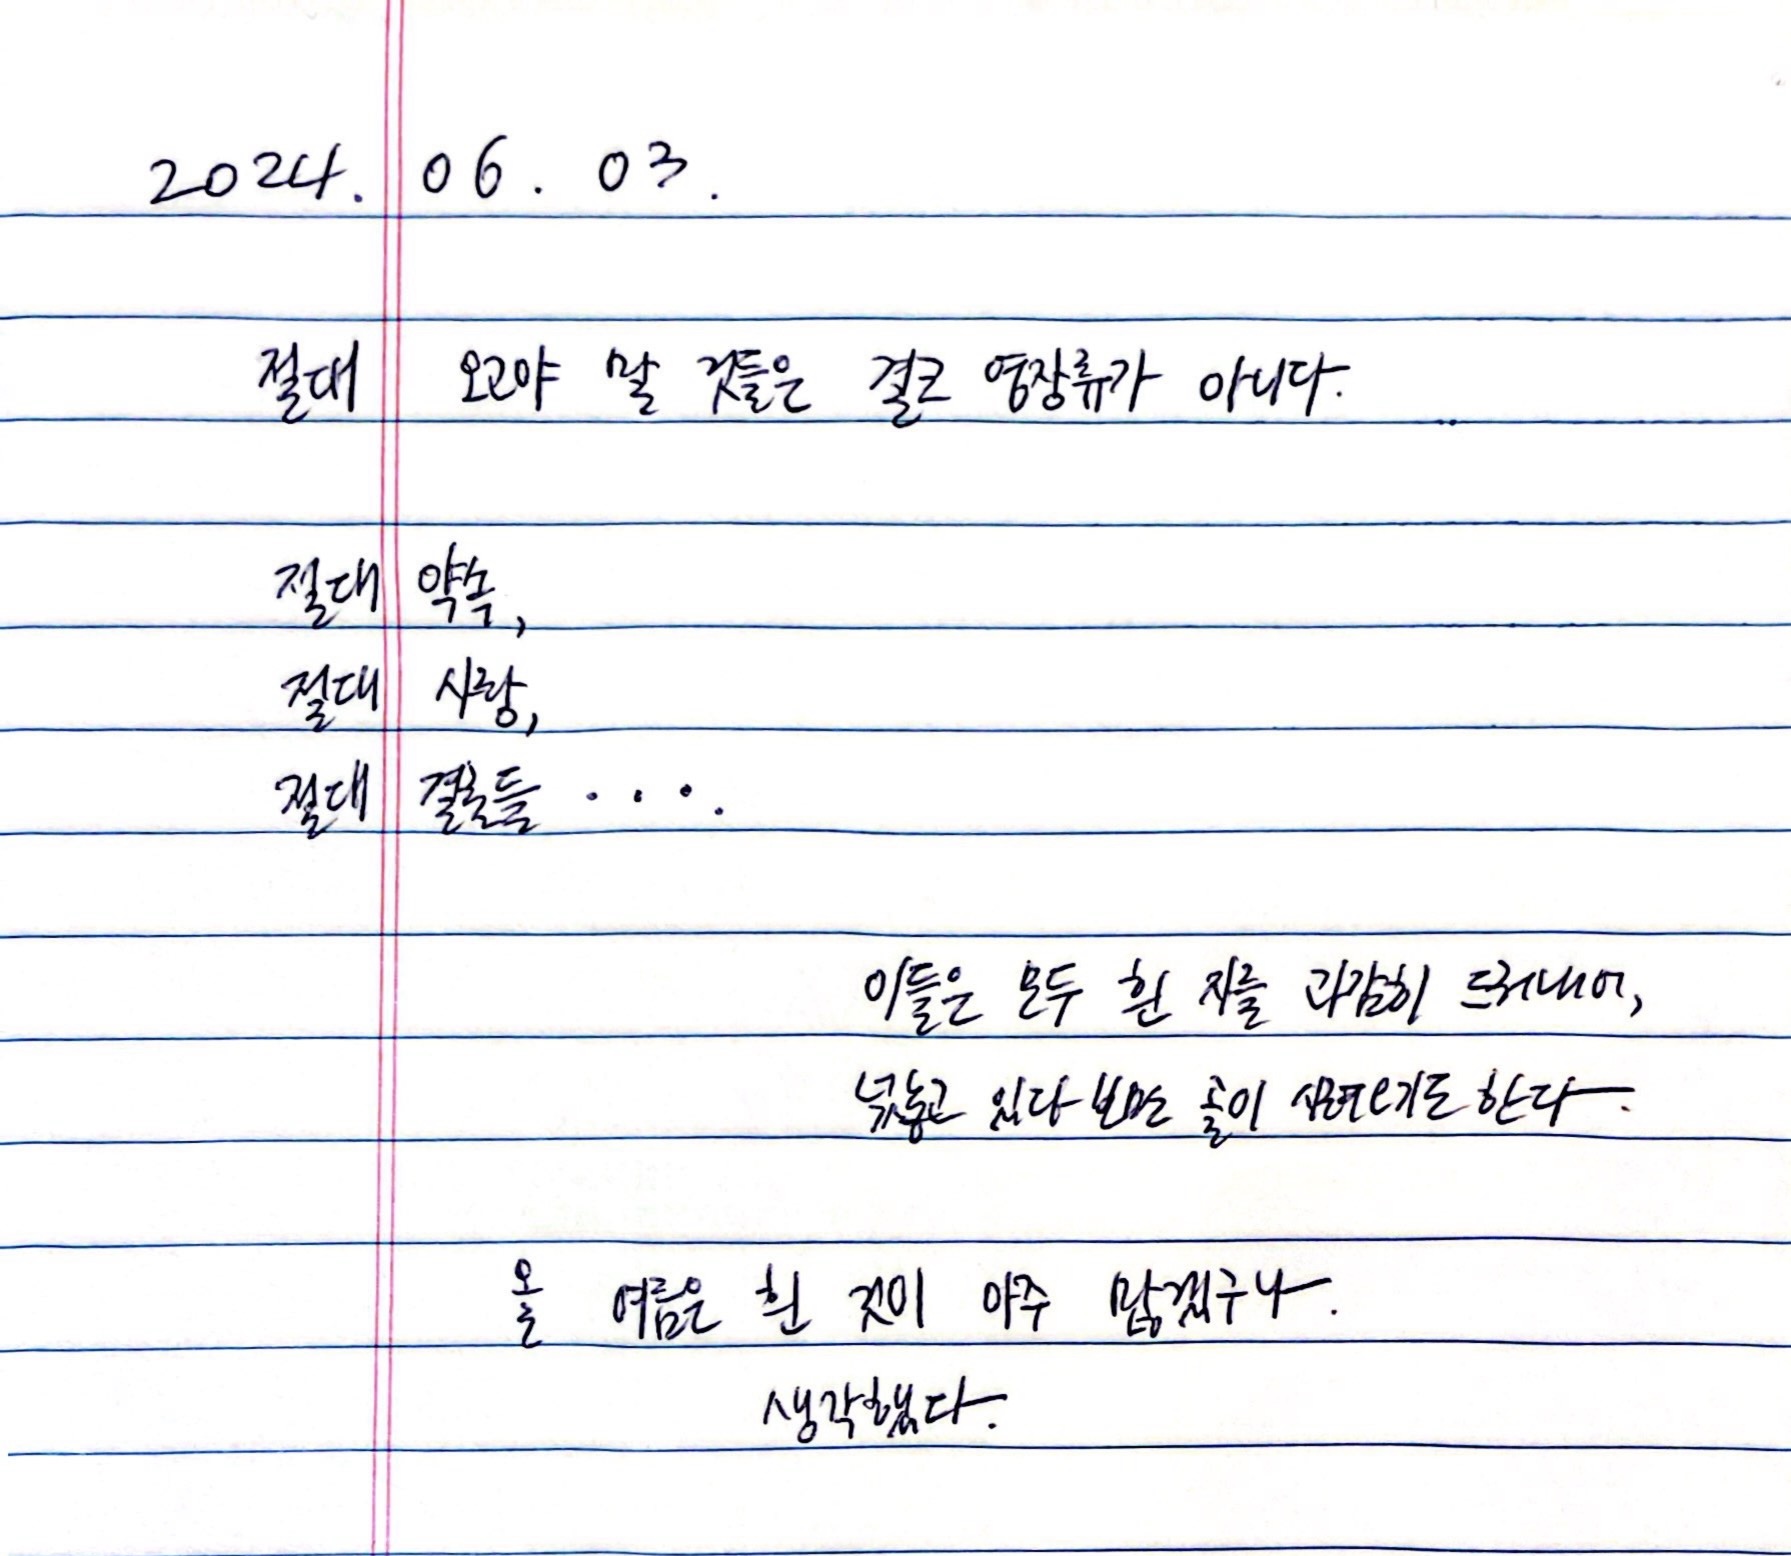 2024. 06. 03.
절대 오고야 말 것들은 결코 영장류가 아니다.
절대 약속,
절대 사랑,
절대 결혼들 ....
이들은 모두 흰 자를 과감히 드러내어,
넋놓고 있다 보면 골이 시려오기도 한다.
올 여름은 흰 것이 아주 많겠구나.
생각했다.